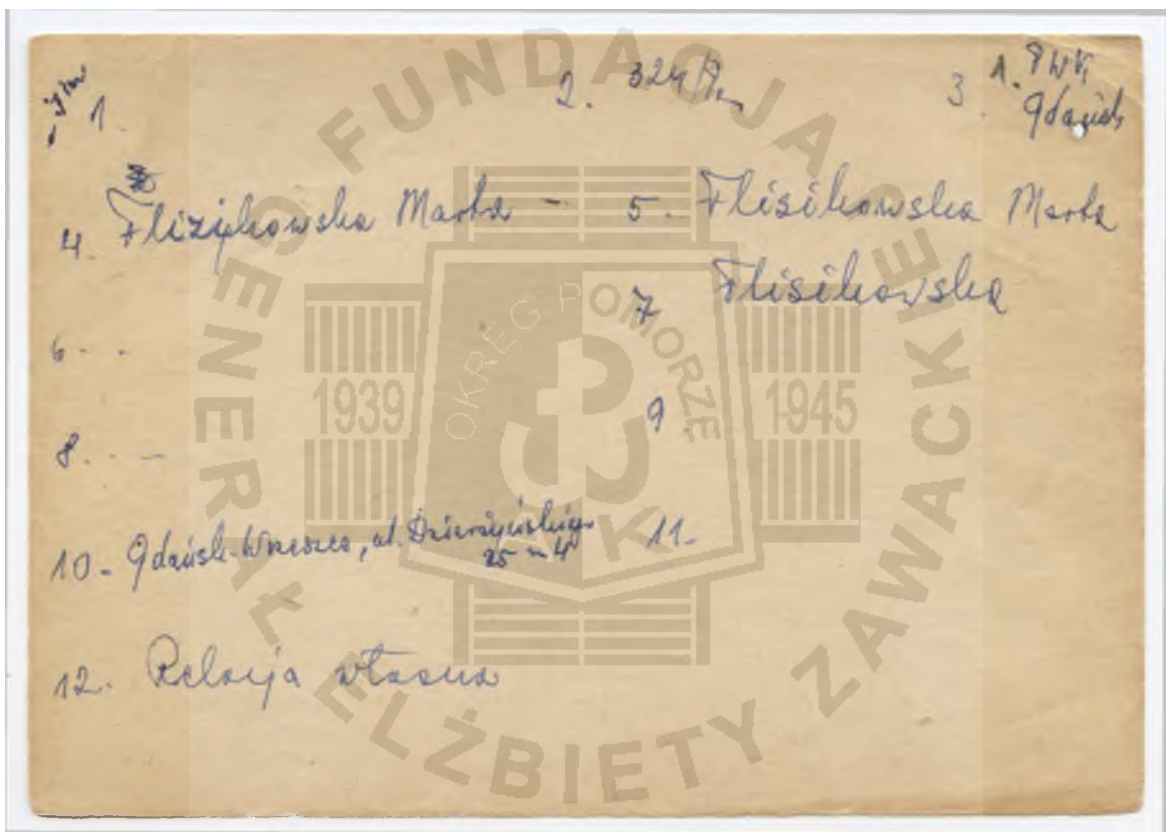 1. 2. 324/ 3. 1. PWK
Gdańsk
4. Flizykowska Marta - 5. Flisikowska Marta
7 Flisikowska
6 - -
9.
8. - -
10 - Gdańsk-Wrzeszcz, ul. Dzierżyńskiego 11.-
25 m 4
12. Relacja własna
FUNDACJA
GENERAŁ ELŻBIETY ZAWACKIEJ
OKRĘG POMORZE
1939 1945